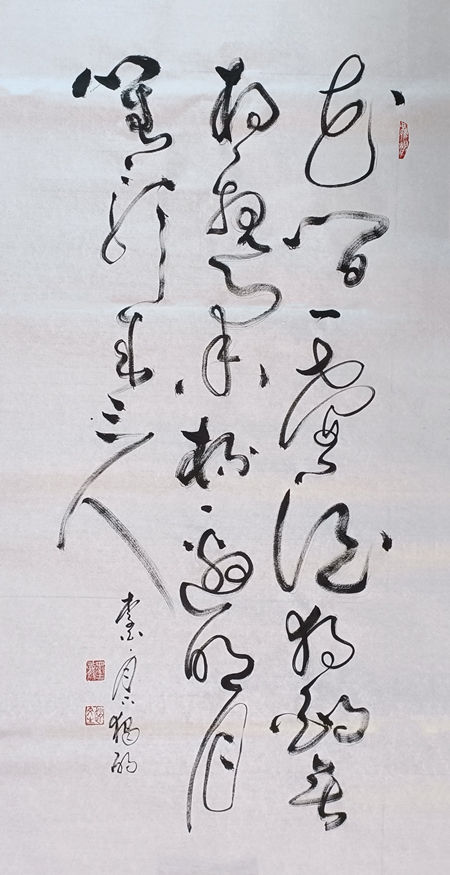 花間一壺酒獨酌無
相親舉杯邀明月
對影成三人
李白·月下獨酌